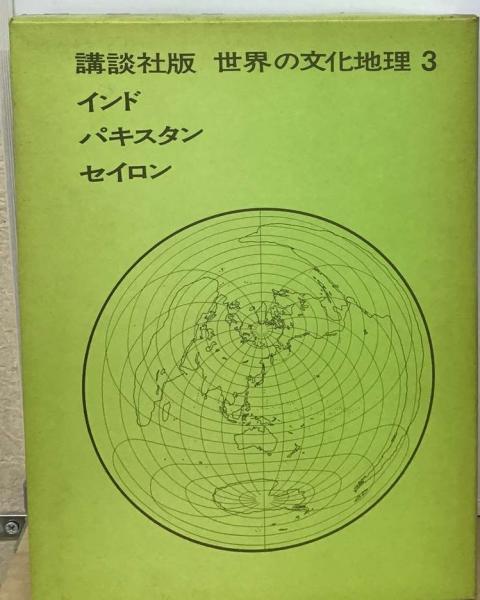 講談社版 世界の文化地理 3
インド
パキスタン
セイロン